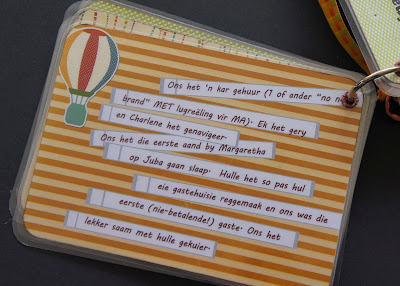 Ons het 'n kar gehuur (1 of ander "no n
brand" MET lugreëling vir MA). Ek het gery
en Charlene het genavigeer.
Ons het die eerste aand by Margaretha
op Juba gaan slaap. Hulle het so pas hul
eie gastehuisie reggemaak en ons was die
eerste (nie-betalende!) gaste. Ons het
lekker saam met hulle gekuier.